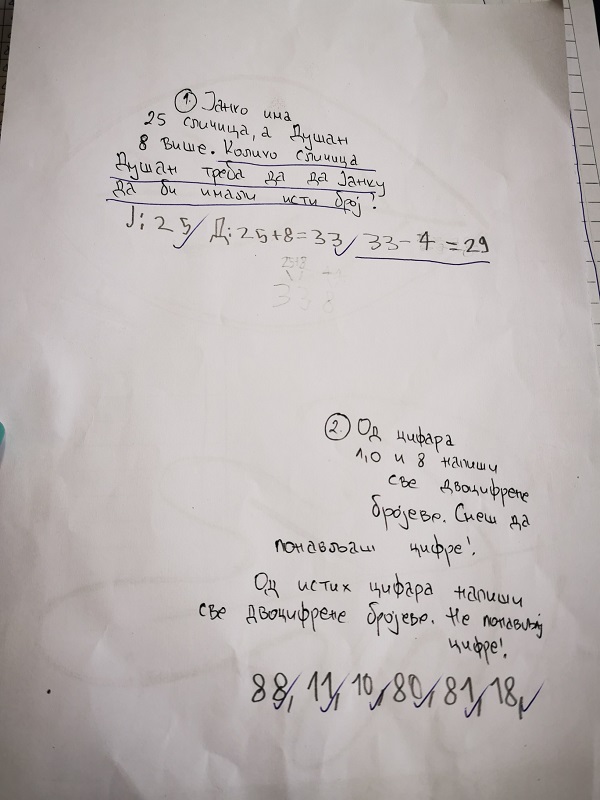 1. Јанко има
25 сличица, а Душан
8 више. Колико сличица
Душан треба да да Јанку
да би имали исти број!
Ј: 25 Д: 25+8=33 33-4=29
2. Од цифара
1,0 и 8 напиши
све двоцифрене
бројеве. Смеш да
понављаш цифре!
Од истих цифара напиши
све двоцифрене бројеве. Не понављај
цифре!
88, 11, 10, 80, 81, 18,